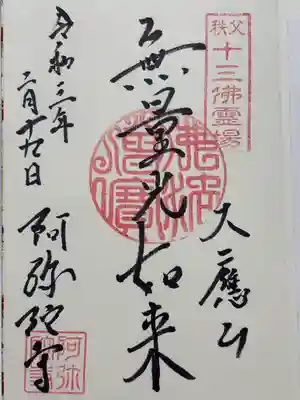 秩父
十三佛霊場
大應山
無量光如来
佛法僧寶
令和三年
二月十九日
阿弥陀寺